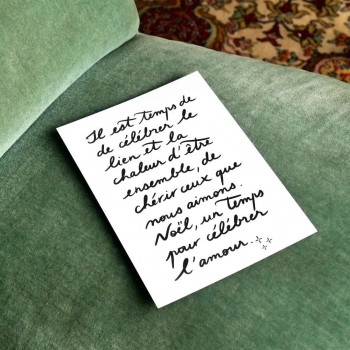 Il est temps de
de célébrer le
lien et la
chaleur d'être
ensemble, de
chérir ceux que
nous aimons.
Noël, un temps
pour célébrer
l'amour...